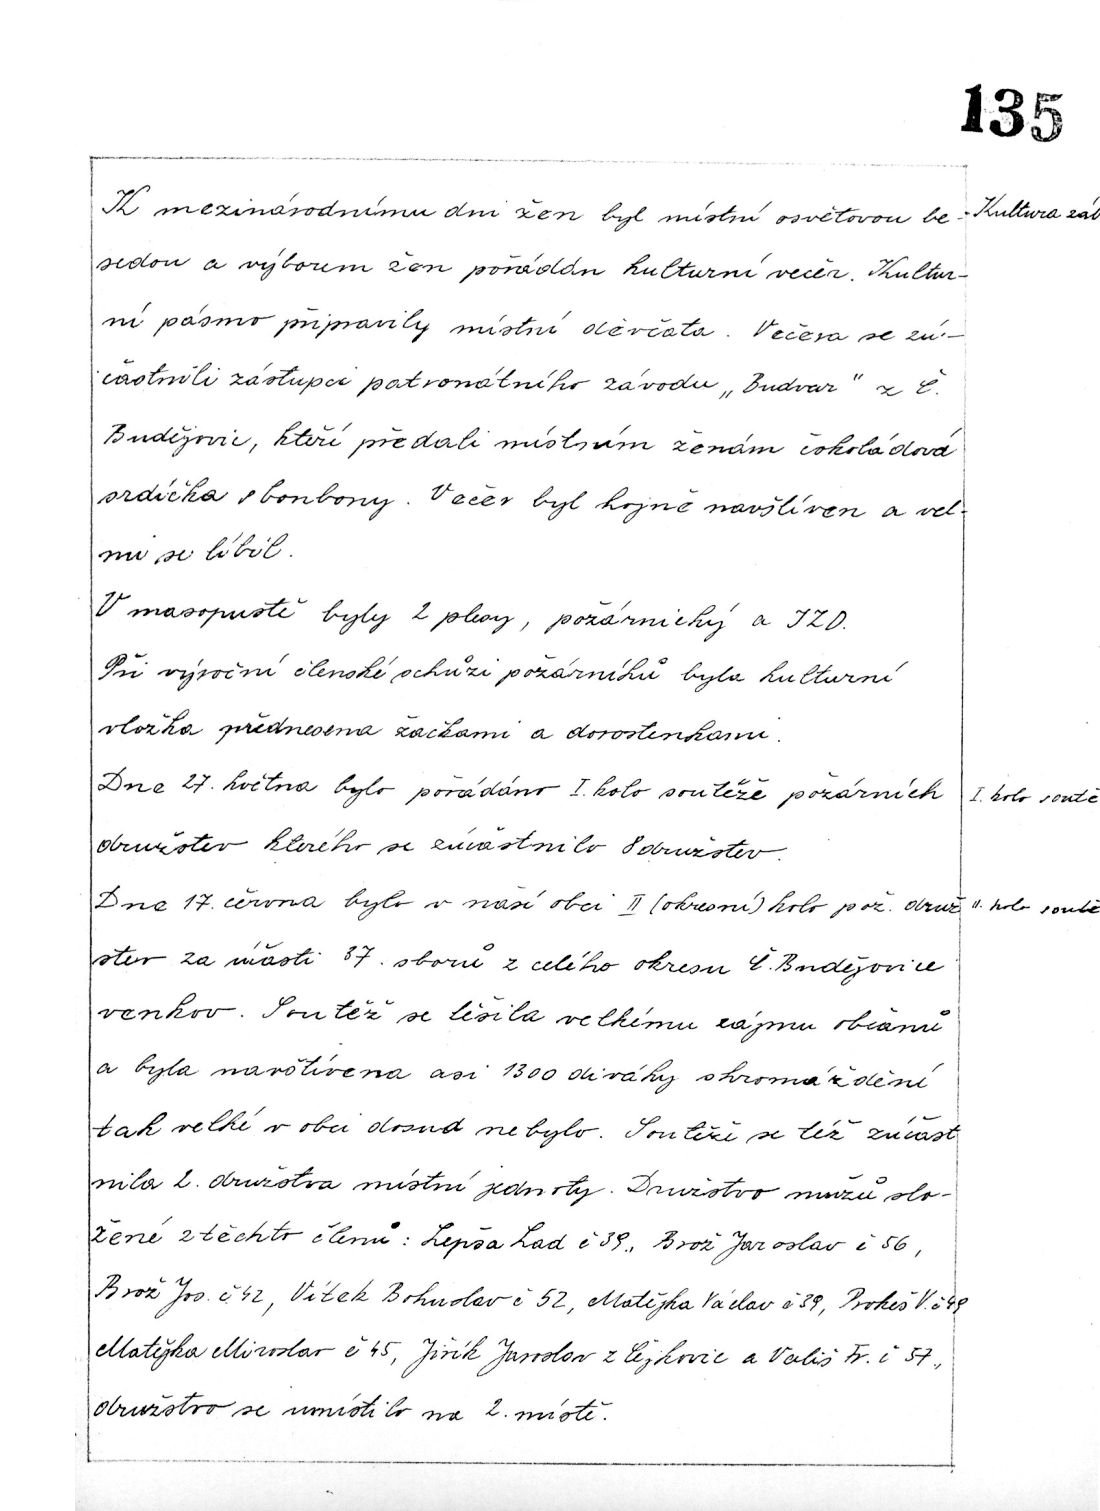 135
K mezinárodnímu dni žen byl místní osvětovou be- Kultura záb
sedou a výborem žen pořádán kulturní večer. Kultur-
ní pásmo připravily místní děvčata. Večera se zú-
častnili zástupci patronátního závodu „Budvar" z Č.
Budějovic, kteří předali místním ženám čokoládová
srdíčka s bonbony. Večer byl hojně navštíven a vel-
mi se líbil.
V masopustě byly 2 plesy, požárnický a JZD.
Při výroční členské schůzi požárníků byla kulturní
vložka přednesena žačkami a dorostenkami.
Dne 27. května bylo pořádáno I. kolo soutěže požárních I. kolo soutě
družstev kterého se zúčastnilo 8 družstev.
Dne 17. června bylo v naší obci II (okresní) kolo pož. druž II. kolo soutě
stev za účasti 37. sborů z celého okresu Č. Budějovice
venkov. Soutěž se těšila velkému zájmu občanů
a byla navštívena asi 1300 diváky shromáždění
tak velké v obci dosud nebylo. Soutěže se též zúčast
nila 2. družstva místní jednoty. Družstvo mužů slo-
žené z těchto členů: Lepša Lad č 39., Brož Jaroslav č 56,
Brož Jos. č 42, Vítek Bohuslav č 52, Matějka Václav č 39, Prokeš V. č 49
Matějka Miroslav č 45, Jiřík Jaroslav z Čejkovic a Vališ Fr. č 57.,
družstvo se umístilo na 2. místě.